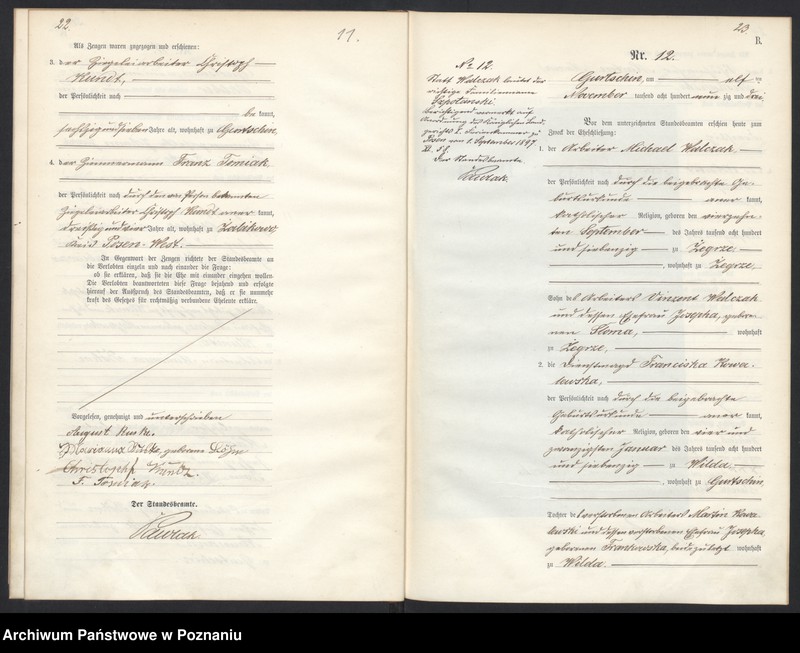 22
11.
Als Zeugen waren zugezogen und erschienen:
3. der Ziegeleiarbeiter Christoph
Kundt,
der Persönlichkeit nach
be kannt,
sechszigundsieben Jahre alt, wohnhaft zu Gurtschin,
4. der Zimmermann Franz Tomiak
der Persönlichkeit nach durch den von Person bekannten
Ziegeleiarbeiter Christoph Kundt aner kannt,
dreißigundvier Jahre alt, wohnhaft zu Zabikowo
Kreis Posen West.
In Gegenwart der Zeugen richtete der Standesbeamte an
die Verlobten einzeln und nach einander die Frage:
ob sie erklären, daß sie die Ehe mit einander eingehen wollen.
Die Verlobten beantworteten diese Frage bejahend und erfolgte
hierauf der Ausspruch des Standesbeamten, daß er sie nunmehr
kraft des Gesetzes für rechtmäßig verbundene Eheleute erkläre.
Vorgelesen, genehmigt und unterschrieben
August
Marianna geborene
Christoph Kundt.
F. Tomiak.
Der Standesbeamte.
23
B.
No 12.
Statt Walczak lautet der
richtige Familienname
Szpotanski
Berichtigend vermerkt auf
Anordnung des Königlichen Land-
gerichts I. Ferienkammer zu
Posen vom 1. September 1897
Der Standesbeamte
Nr. 12.
Gurtschin, am elf ten
November tausend acht hundert neun zig und drei
Vor dem unterzeichneten Standesbeamten erschienen heute zum
Zweck der Eheschließung:
1. der Arbeiter Michael Walczak
der Persönlichkeit nach durch die beigebrachte Ge-
burtsurkunde aner kannt,
katholischer Religion, geboren den vierzehn-
ten September des Jahres tausend acht hundert
und siebenzig zu Zegrze
, wohnhaft zu Zegrze,
Sohn des Arbeiters Vinzent Walczak
und dessen Ehefrau Josepha, gebore-
nen Sloma, wohnhaft
zu Zegrze,
2. die Dienstmagd Franciska Kowa-
lewska,
der Persönlichkeit nach durch die beigebrachte
Geburtsurkunde aner kannt,
katholischer Religion, geboren den vier und
zwanzigsten Januar des Jahres tausend acht hundert
und siebenzig zu Wilda
, wohnhaft zu Gurtschin
Tochter des verstorbenen Arbeiters Martin Kowa-
lewski und dessen verstorbenen Ehefrau Josepha,
geborenen Frankowska, beide zuletzt wohnhaft
zu Wilda.
Archiwum Państwowe w Poznaniu